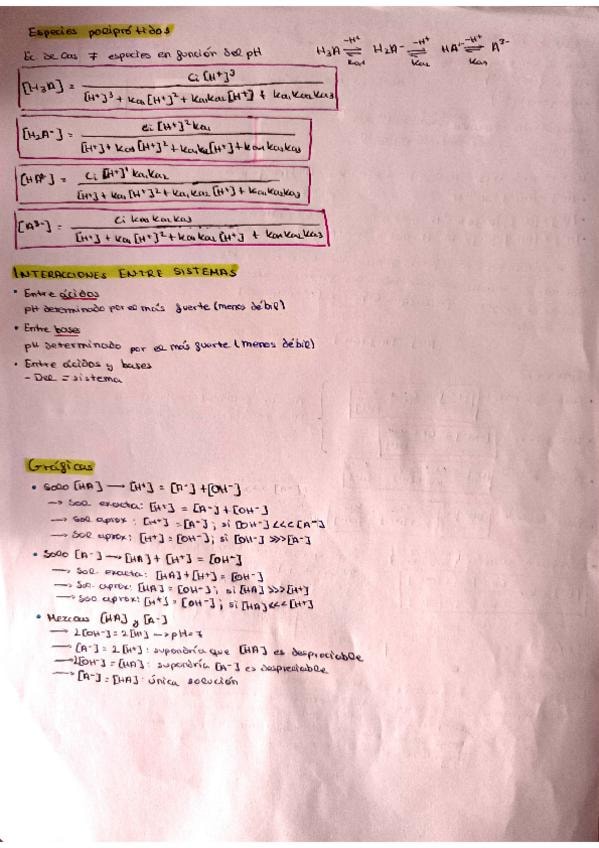 Especies polipróticos
Ec de las 7 especies en función del pH
H₃A ⇌ H₂A⁻ ⇌ HA²⁻ ⇌ A³⁻
-H⁺ -H⁺ -H⁺
Ka₁ Ka₂ Ka₃
[H₃A] = Ci [H⁺]³ / [H⁺]³ + Ka₁[H⁺]² + Ka₁Ka₂[H⁺] + Ka₁Ka₂Ka₃
[H₂A⁻] = Ci [H⁺]² Ka₁ / [H⁺] + Ka₁[H⁺]² + Ka₁Ka₂[H⁺] + Ka₁Ka₂Ka₃
[HA²⁻] = Ci [H⁺]¹ Ka₁Ka₂ / [H⁺] + Ka₁[H⁺]² + Ka₁Ka₂[H⁺] + Ka₁Ka₂Ka₃
[A³⁻] = Ci Ka₁Ka₂Ka₃ / [H⁺] + Ka₁[H⁺]² + Ka₁Ka₂[H⁺] + Ka₁Ka₂Ka₃
INTERACCIONES ENTRE SISTEMAS
• Entre ácidos
pH determinado por el más fuerte (menos débil)
• Entre base
pH determinado por el más fuerte (menos débil)
• Entre ácidos y bases
- Del = sistema
Gráficas
• Solo [HA] → [H⁺] = [A⁻] + [OH⁻]
→ Sol exacta: [H⁺] = [A⁻] + [OH⁻]
→ Sol aprox: [H⁺] = [A⁻]; si [OH⁻] <<< [A⁻]
→ Sol aprox: [H⁺] = [OH⁻]; si [OH⁻] >>> [A⁻]
• Solo [A⁻] → [HA] + [H⁺] = [OH⁻]
→ Sol. exacta: [HA] + [H⁺] = [OH⁻]
→ Sol. aprox: [HA] = [OH⁻]; si [HA] >>> [H⁺]
→ Sol aprox: [H⁺] = [OH⁻]; si [HA] <<< [H⁺]
• Mezclas [HA] y [A⁻]
→ 2[OH⁻] = 2[H⁺] → pH = 7
→ [A⁻] = 2[H⁺]: supondría que [HA] es despreciable
→ 2[OH⁻] = [HA]: supondría [A⁻] es despreciable
→ [A⁻] = [HA]: única solución